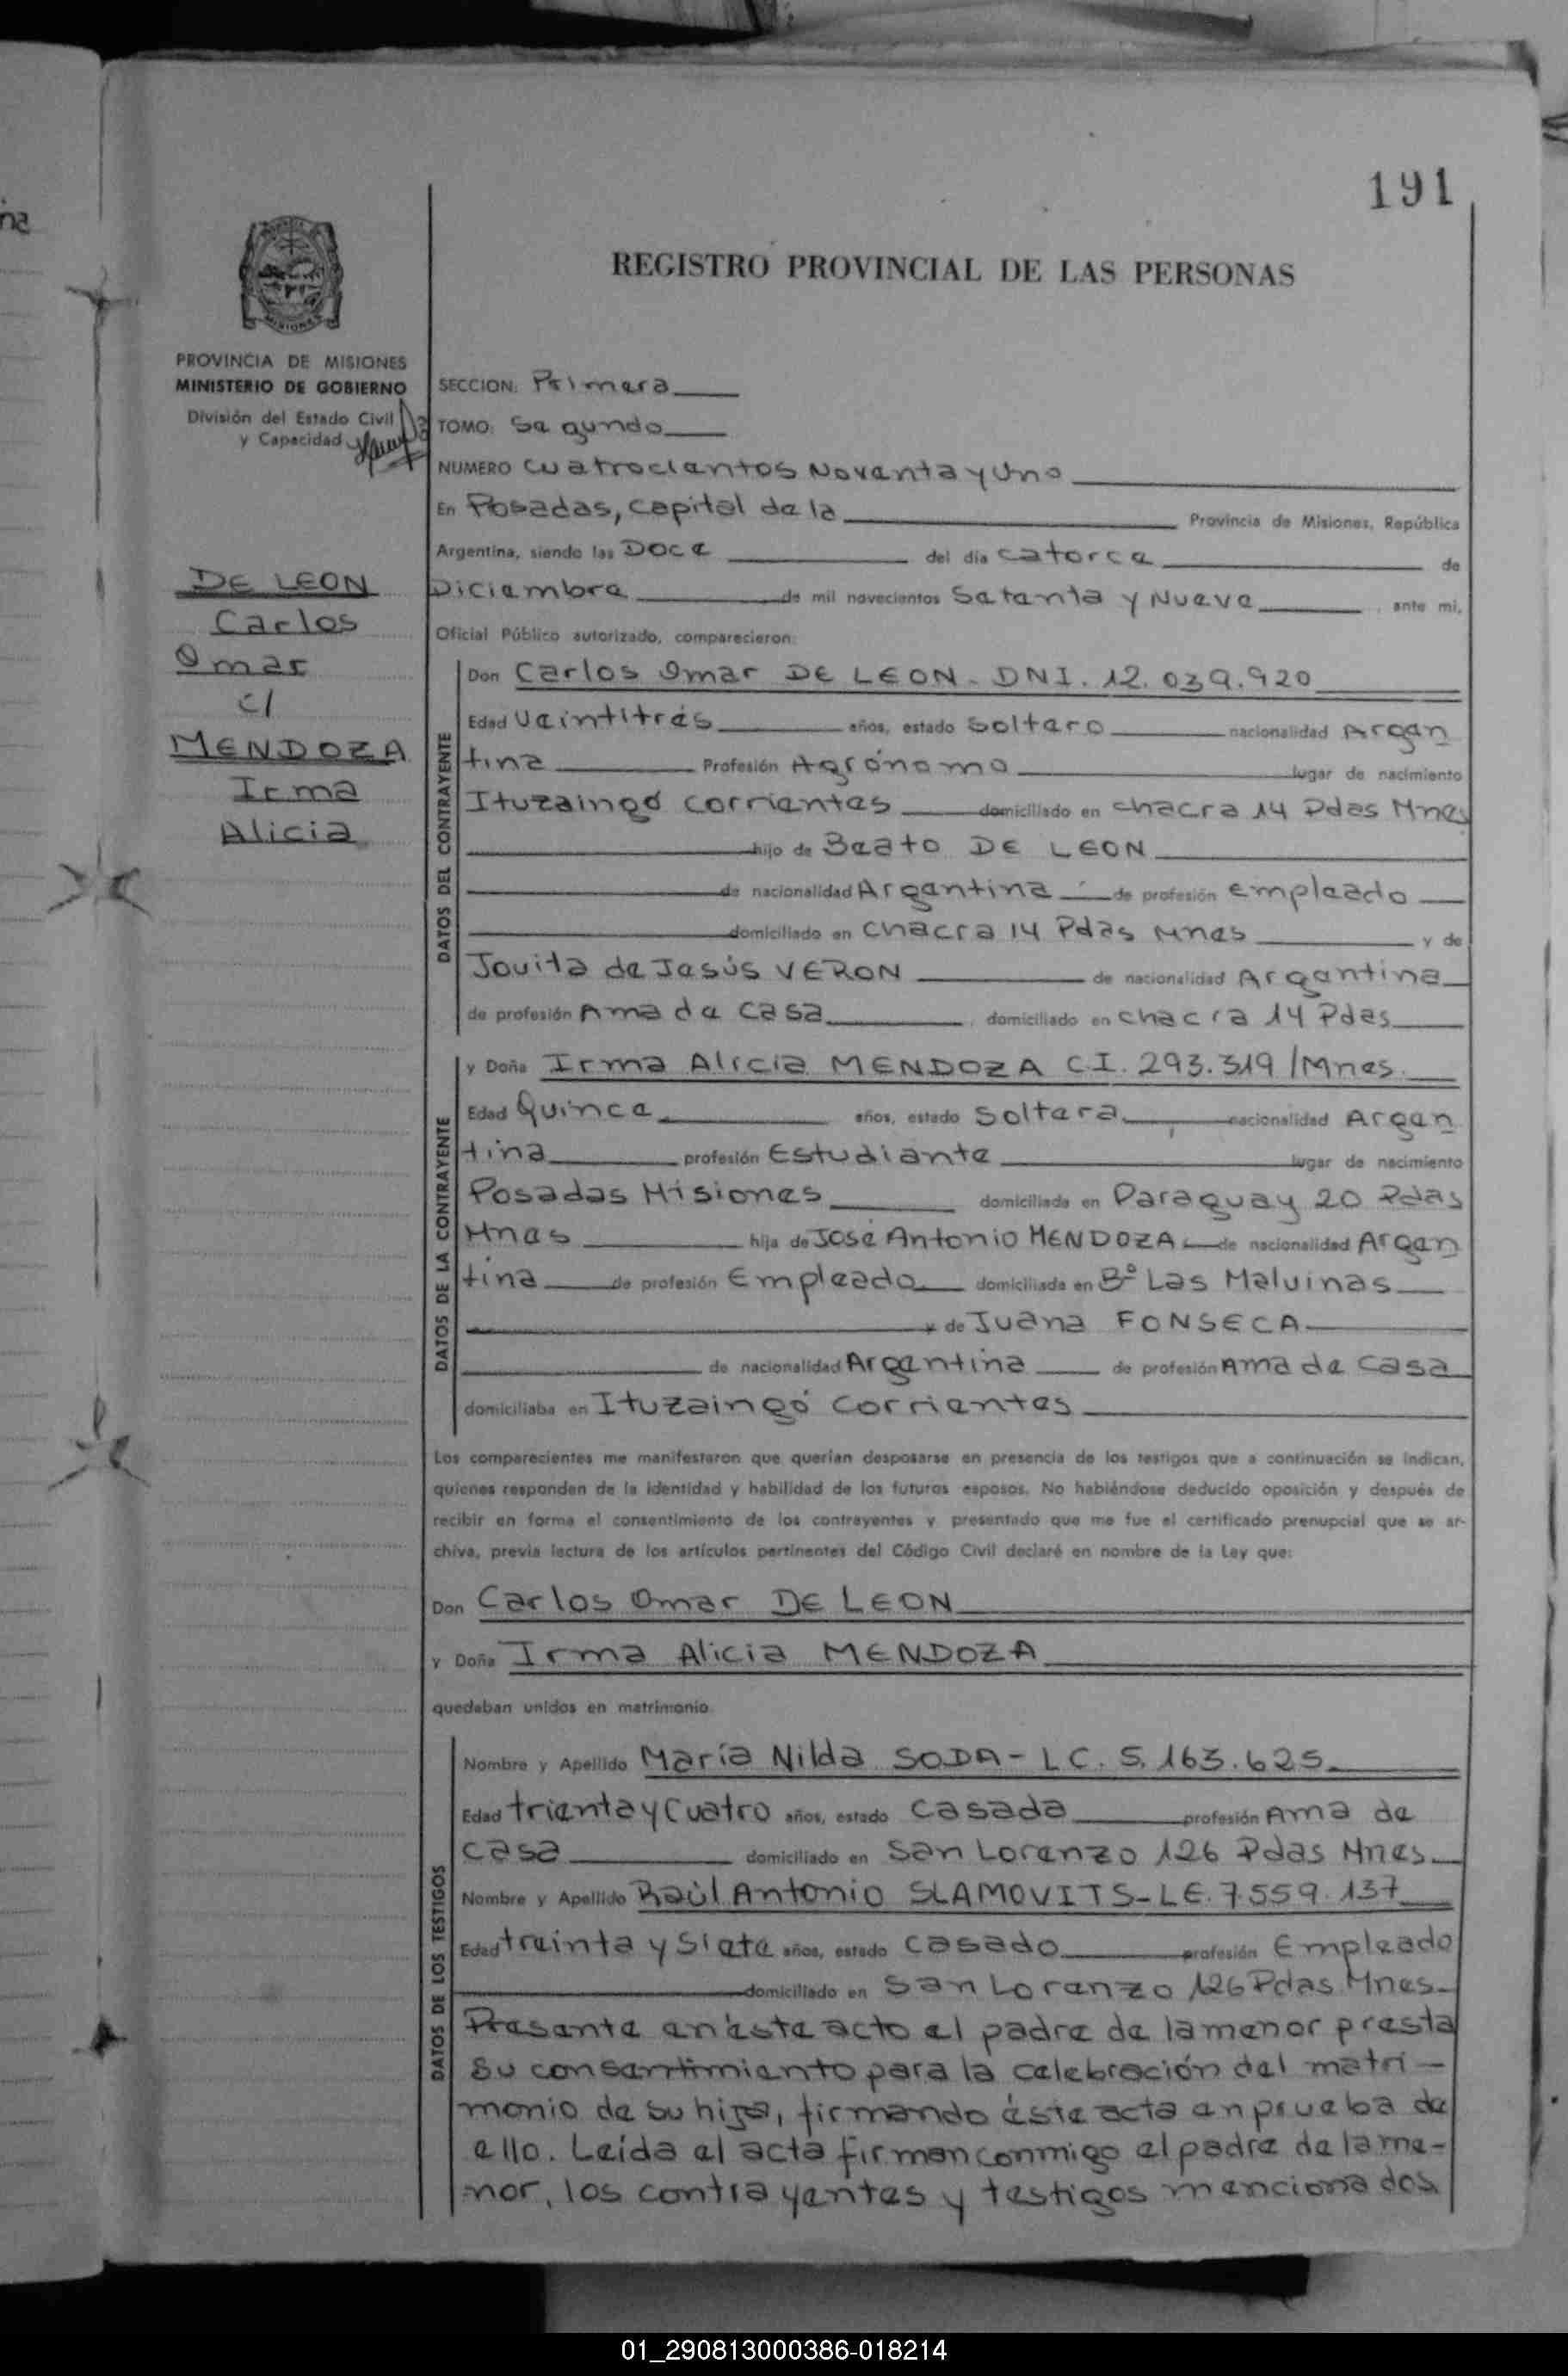 na
191
MISIONES
REGISTRO PROVINCIAL DE LAS PERSONAS
PROVINCIA DE MISIONES
MINISTERIO DE GOBIERNO
División del Estado Civil
y Capacidad
DE LEON
Carlos
Omar
c/
MENDOZA
Irma
Alicia
SECCION: Primera
TOMO: Segundo
NUMERO Cuatrocientos Noventa y Uno
En Posadas, Capital de la Provincia de Misiones, República
Argentina, siendo las Doce del día catorce de
Diciembre de mil novecientos Setenta y Nueve, ante mi,
Oficial Público autorizado, comparecieron:
DATOS DEL CONTRAYENTE
Don Carlos Omar DE LEON - DNI. 12.039.920
Edad Veintitrés años, estado Soltero nacionalidad Argen
tina Profesión Agrónomo lugar de nacimiento
Ituzaingó Corrientes domiciliado en chacra 14 Pdas Mnes
hijo de Beato DE LEON
de nacionalidad Argentina de profesión empleado
domiciliado en chacra 14 Pdas Mnes y de
Jovita de Jesús VERON de nacionalidad Argentina
de profesión Ama de casa domiciliado en chacra 14 Pdas
DATOS DE LA CONTRAYENTE
y Doña Irma Alicia MENDOZA C.I. 293.319/Mnes.
Edad Quince años, estado Soltera nacionalidad Argen
tina profesión Estudiante lugar de nacimiento
Posadas Misiones domiciliada en Paraguay 20 Pdas
Mnes hija de José Antonio MENDOZA de nacionalidad Argen
tina de profesión Empleado domiciliada en Bº Las Malvinas
y de Juana FONSECA
de nacionalidad Argentina de profesión Ama de Casa
domiciliaba en Ituzaingó Corrientes
Los comparecientes me manifestaron que querían desposarse en presencia de los testigos que a continuación se indican,
quienes responden de la identidad y habilidad de los futuros esposos. No habiéndose deducido oposición y después de
recibir en forma el consentimiento de los contrayentes y presentado que me fue el certificado prenupcial que se ar-
chiva, previa lectura de los artículos pertinentes del Código Civil declaré en nombre de la Ley que:
Don Carlos Omar DE LEON
y Doña Irma Alicia MENDOZA
quedaban unidos en matrimonio
DATOS DE LOS TESTIGOS
Nombre y Apellido María Nilda SODA - LC. 5.163.625
Edad trienta y Cuatro años, estado Casada profesión Ama de
casa domiciliado en San Lorenzo 126 Pdas Mnes
Nombre y Apellido Raúl Antonio SLAMOVITS - LE. 7.559.137
Edad treinta y Siete años, estado Casado profesión Empleado
domiciliado en San Lorenzo 126 Pdas Mnes
Presente en éste acto el padre de la menor presta
su consentimiento para la celebración del matri-
monio de su hija, firmando éste acta en prueba de
ello. Leída el acta firman conmigo el padre de la me-
nor, los contrayentes y testigos mencionados.
01_290813000386-018214